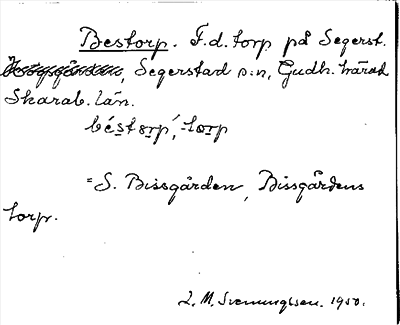 Bestorp. F.d. torp på Segerst.
Segerstad s:n, Gudh. härad
Skarab. län.
béstorp, -torp
= S. Bissgården, Bissgårdens
torp.
L. M. Svenungsson. 1950.